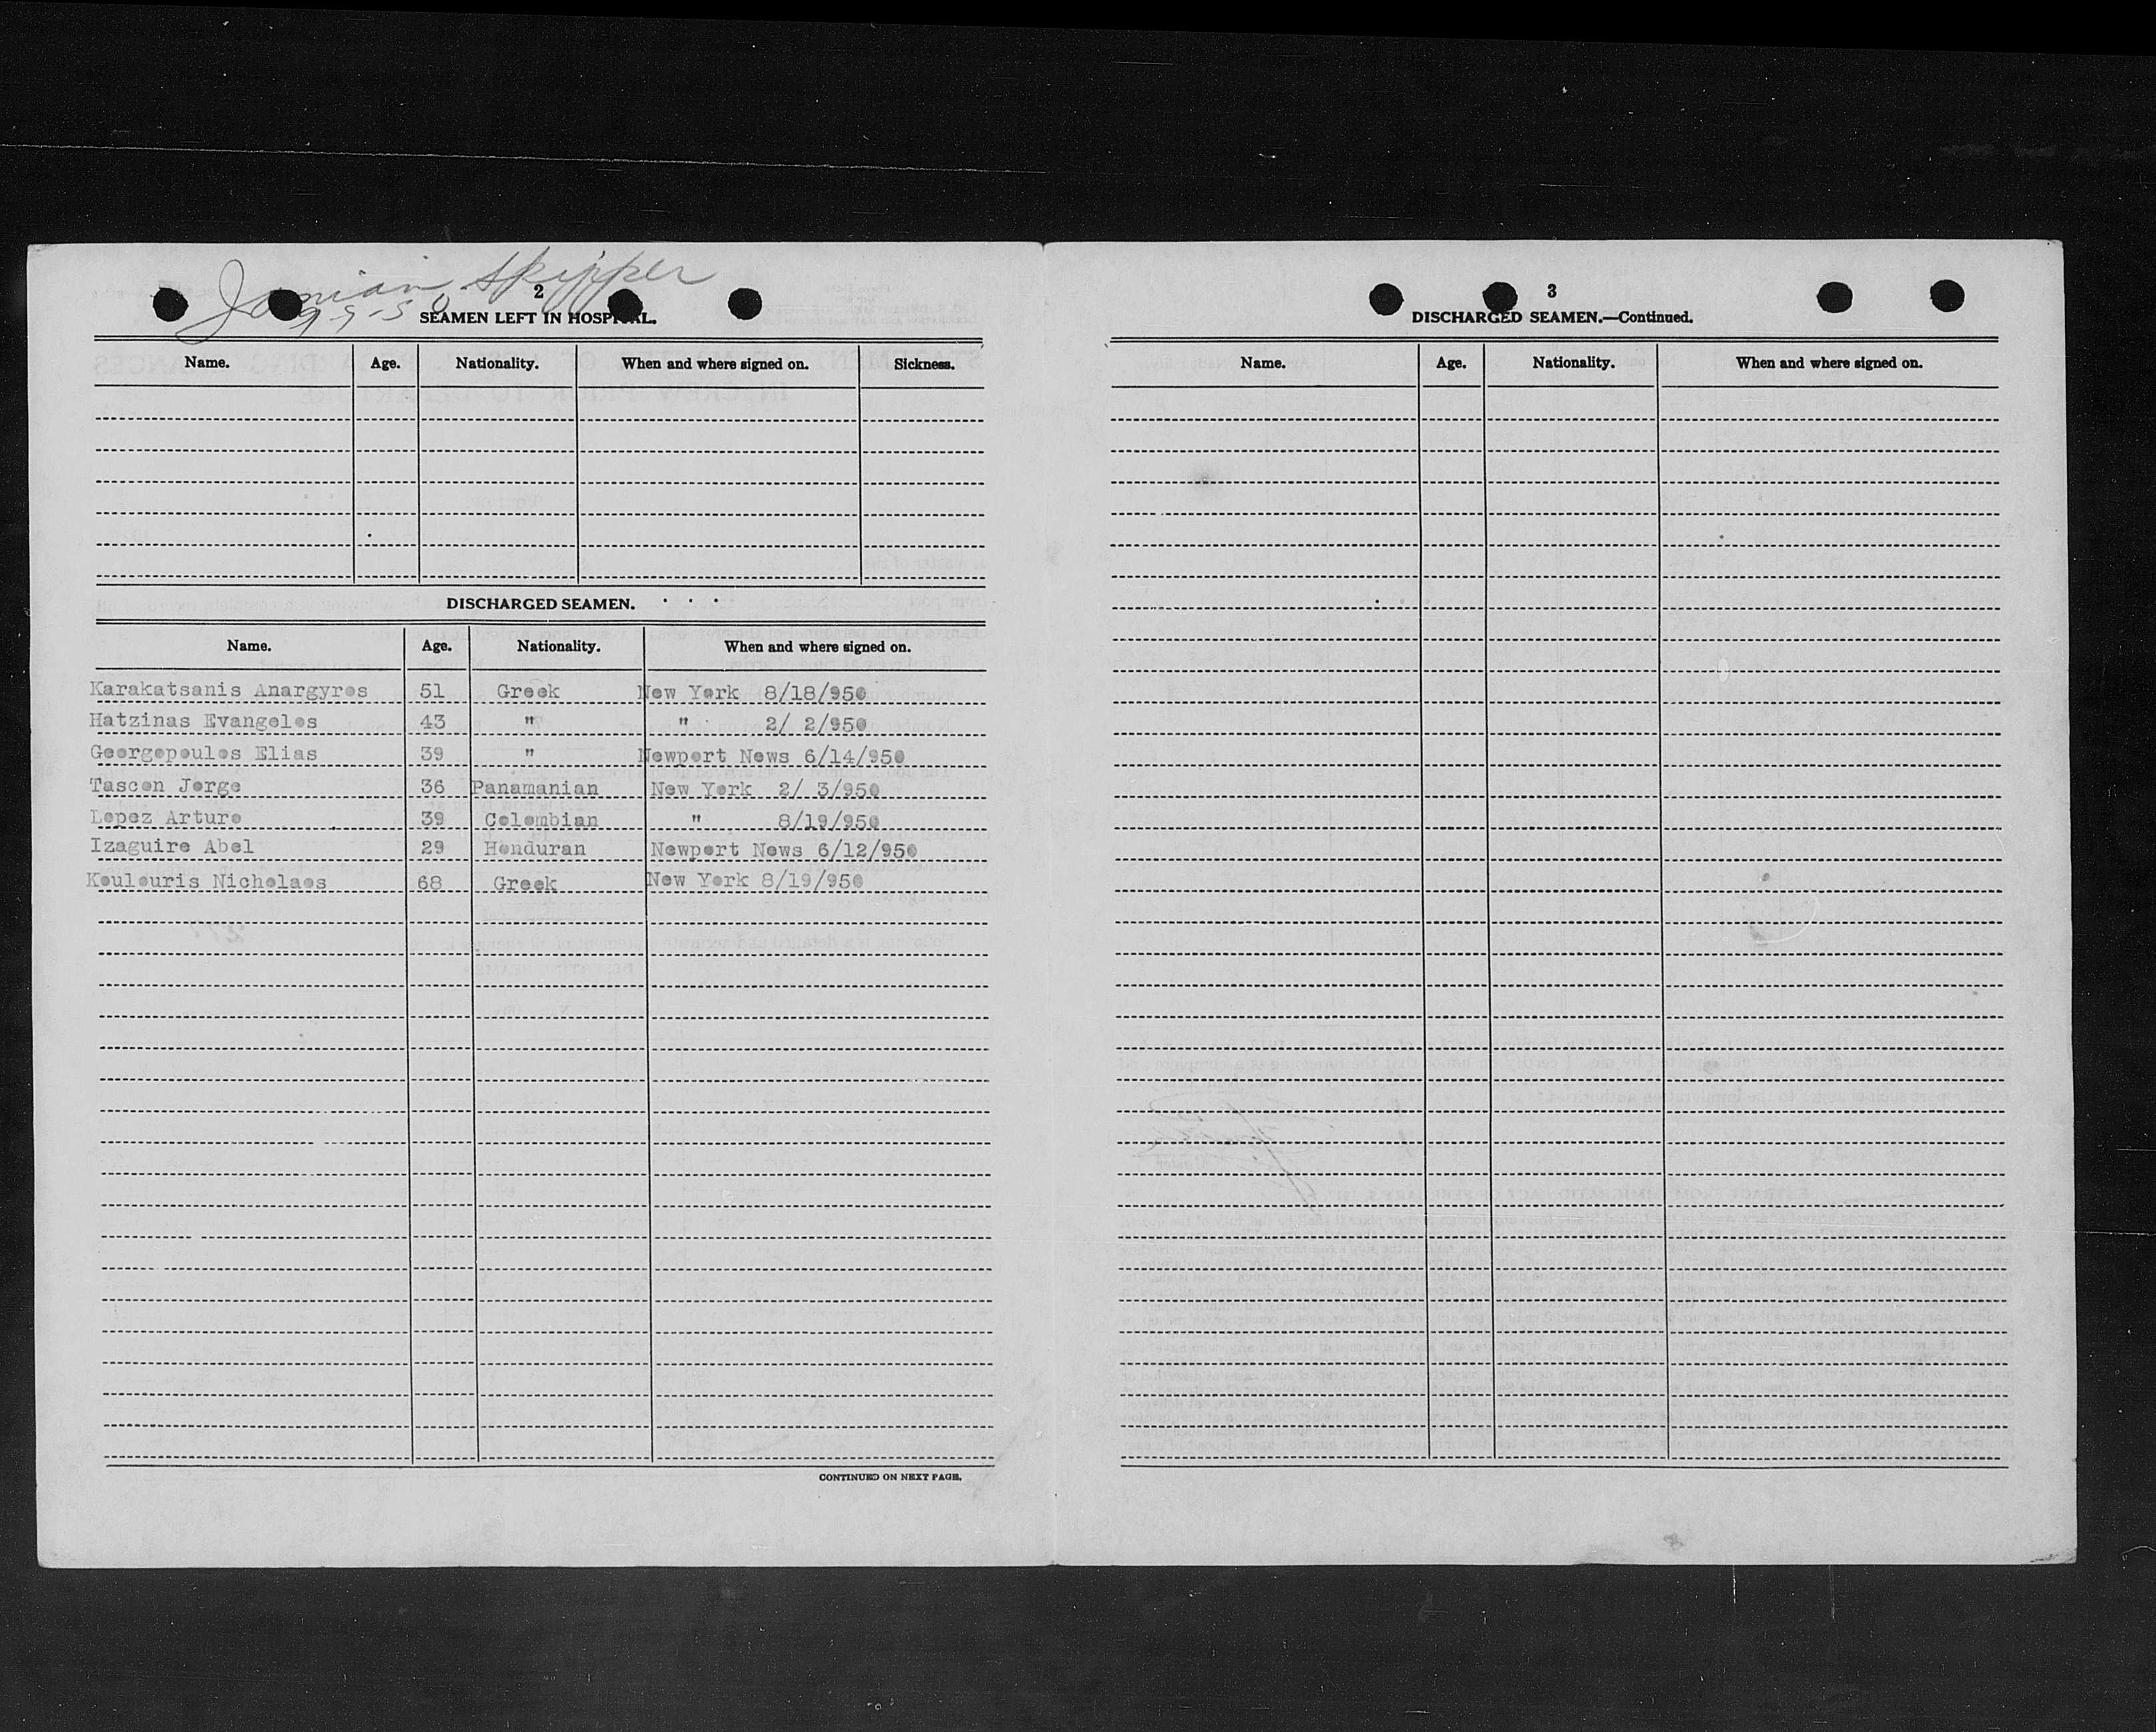 Ionian Skipper
9-9-50
2
SEAMEN LEFT IN HOSPITAL.
Name. Age. Nationality. When and where signed on. Sickness.
DISCHARGED SEAMEN.
Name. Age. Nationality. When and where signed on.
Karakatsanis Anargyros 51 Greek New York 8/18/950
Hatzinas Evangelos 43 " " 2/ 2/950
Georgopoulos Elias 39 " Newport News 6/14/950
Tascon Jorge 36 Panamanian New York 2/ 3/950
Lopez Arturo 39 Colombian " 8/19/950
Izaguire Abel 29 Honduran Newport News 6/12/950
Koulouris Nicholaos 68 Greek New York 8/19/950
CONTINUED ON NEXT PAGE.
3
DISCHARGED SEAMEN.—Continued.
Name. Age. Nationality. When and where signed on.